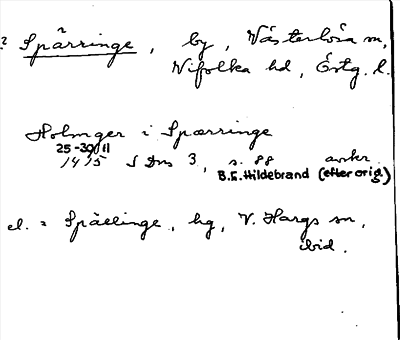 ? Spärringe, by, Västerlösa sn,
Vifolka hd, Östg. l.
Holmger i Spærringe
25-30/11
1415 S Dns 3, s. 88 avskr.
B.E. Hildebrand (efter orig.)
el. = Spällinge, hg, V. Hargs sn,
ibid.